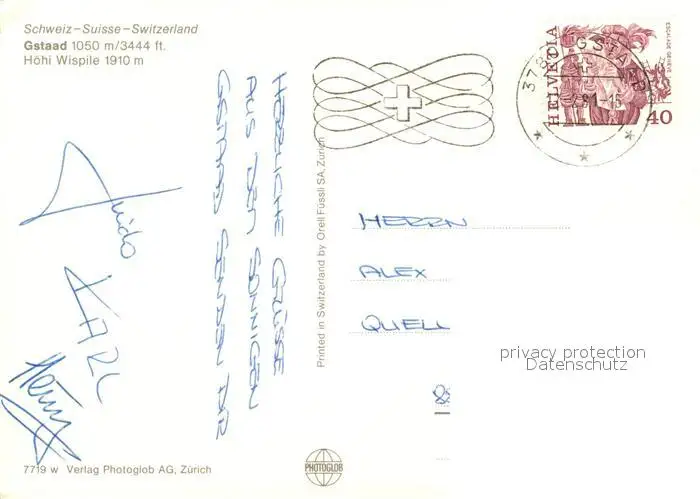 Schweiz–Suisse–Switzerland
Gstaad 1050 m/3444 ft.
Höhi Wispile 1910 m
HERZLICHE GRÜSSE
AUS DEM SONNIGEN
GSTAAD SENDEN DIR
Guido
KARL
Heinz
Printed in Switzerland by Orell Füssli SA, Zürich
378 GSTAAD
81-15
HELVETIA
ESCALADE GENÈVE
40
HERRN
ALEX
QUELL
8
privacy protection
Datenschutz
7719 w Verlag Photoglob AG, Zürich
PHOTOGLOB